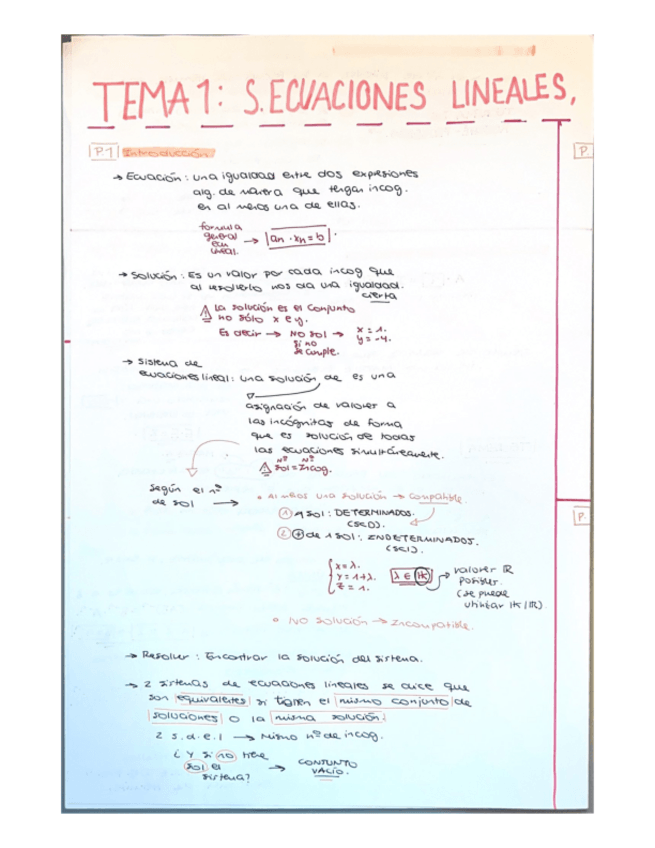 TEMA 1: S.ECUACIONES LINEALES,
P.1 Introducción
P.
→ Ecuación: una igualdad entre dos expresiones
alg. de manera que tengan incog.
en al menos una de ellas.
formula
general
ecu
lineal.
→ an · xn = b
→ Solución: Es un valor por cada incog que
al resolverlo nos da una igualdad.
cierta
⚠ La solución es el conjunto
no sólo x e y.
Es decir → No sol →
si no
se cumple.
x = 1.
y = -4.
→ Sistema de
ecuaciones lineal: una solución, de es una
asignación de valores a
las incógnitas de forma
que es solución de todas
las ecuaciones simultáneamente.
⚠ Nº sol = Nº incog.
Según el nº
de sol →
• Al menos una solución → Compatible.
① 1 sol: DETERMINADOS.
(SCD).
② ⊕ de 1 sol: INDETERMINADOS.
(SCI).
P.
x = λ.
y = 1+λ.
z = 1.
λ ∈ K → valores R
posibles.
(se puede
utilizar K / R).
• NO solución → Incompatible.
→ Resolver: Encontrar la solución del sistema.
→ 2 sistemas de ecuaciones lineales se dice que
son equivalentes si tienen el mismo conjunto de
soluciones o la misma solución.
2 s.d.e.l → Mismo nº de incog.
¿Y si no tiene
sol el
sistema?
→ CONJUNTO
VACÍO.